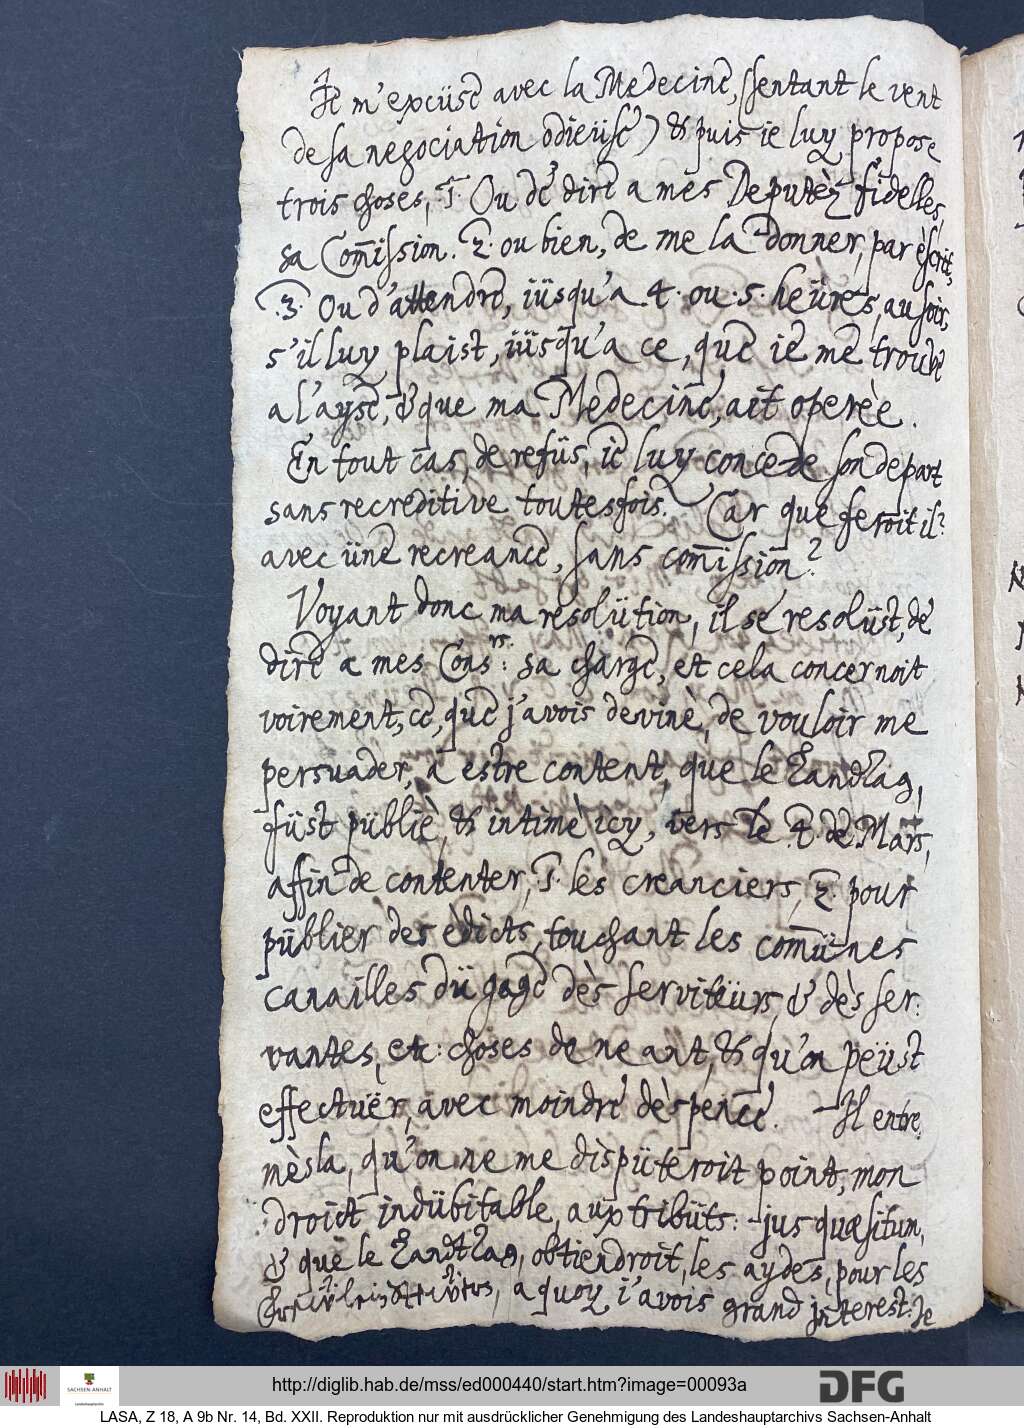 Je m'excüse avec la Medecine, (sentant le vent
de sa negociation odieüse) & puis ie luy propose
trois choses, 1. Ou de dire a mes Deputèz fidelles,
sa Com̅ission. 2. ou bien, de me la donner, par èscrit,
.3. Ou d'attendre, iüsqu'a 4. ou .5. heüres, au soir,
s'il luy plaist, iüsqu'a ce, que ie me trouve
a l'ayse, & que ma Medecine, ait operèe.
En tout cas, de refüs, ie luy concede son depart
sans recreditive toutesfois. Car que feroit il?
avec üne recreance, sans com̅ission?
Voyant donc ma resolütion, il se resolüst, de
dire a mes Cons.rs: sa charge, et cela concernoit
voirement, ce, que j'avois devinè, de vouloir me
persuader, a estre content, que le Landtag,
füst pübliè, & intimè icy, vers le .4. de Mars,
affin de contenter, 1. les creanciers, 2. pour
püblier des èdicts, touchant les com̅ünes
canailles dü gage dès serviteürs, & dès ser:
vantes, etc: choses de neant, & qu'on peüst
effectuër, avec moindre dèspence. Il entre
mèsla, qu'on ne me dispüteroit point, mon
droict indübitable, aux tribüts: jus quæsitum,
& que le Landtag, obtiendroit, les aydes, pour les
a quoy i'avois grand interest. Je
http://diglib.hab.de/mss/ed000440/start.htm?image=00093a
SACHSEN-ANHALT
DFG
LASA, Z 18, A 9b Nr. 14, Bd. XXII. Reproduktion nur mit ausdrücklicher Genehmigung des Landeshauptarchivs Sachsen-Anhalt